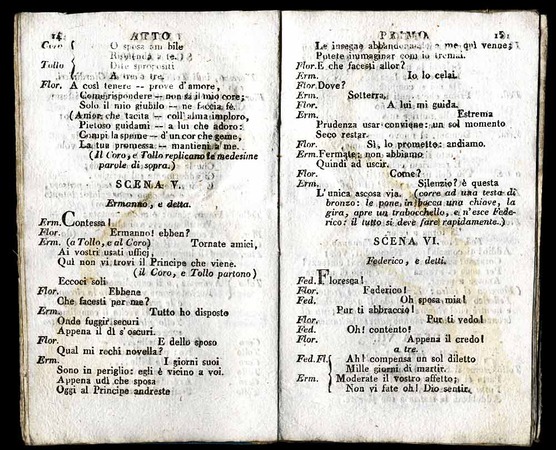 14 ATTO
Coro O sposa am bile
Risplenda a te.)
Tollo Dite spropositi
A tre a tre.
Flor. A così tenere — prove d'amore,
Come rispondere — non sa il mio core;
Solo il mio giubilo — ne faccia fè.
(Amor che tacita — coll'alma imploro,
Pietoso guidami — a lui che adoro:
Compi la speme — d'un cor che geme,
La tua promessa — mantieni a me.
(Il Coro, e Tollo replicano le medesime
parole di sopra.)
SCENA V.
Ermanno, e detta.
Erm. Contessa!
Flor. Ermanno! ebben?
Erm. (a Tollo, e al Coro) Tornate amici,
Ai vostri usati uffici,
Quì non vi trovi il Principe che viene.
(il Coro, e Tollo partono)
Eccoci soli
Flor. Ebbene
Che facesti per me?
Erm. Tutto ho disposto
Onde fuggir securi
Appena il dì s'oscuri.
Flor. E dello sposo
Qual mi rechi novella?
Erm. I giorni suoi
Sono in periglio: egli è vicino a voi.
Appena udì che sposa
Oggi al Principe andreste
PRIMO 15
Le insegne abbandonò, a me quì venne;
Potete immaginar com'io tremai.
Flor. E che facesti allor?
Erm. Io lo celai.
Flor. Dove?
Erm. Sotterra.
Flor. A lui mi guida.
Erm. Estrema
Prudenza usar conviene: un sol momento
Seco restar.
Flor. Sì, lo prometto: andiamo.
Erm. Fermate: non abbiamo
Quindi ad uscir.
Flor. Come?
Erm. Silenzio? è questa
L'unica ascosa via. (corre ad una testa di
bronzo: le pone in bocca una chiove, la
gira, apre un trabocchello, e n'esce Fede-
rico: il tutto si deve fare rapidamente.)
SCENA VI.
Federico, e detti.
Fed. Floresca!
Flor. Federico!
Fed. Oh sposa mia!
Pur ti abbraccio!
Flor. Pur ti vedo!
Fed. Oh! contento!
Flor. Appena il credo!
a tre.
Fed. Fl. Ah! compensa un sol diletto
Mille giorni di martir.
Erm. Moderate il vostro affetto;
Non vi fate oh! Dio sentir.